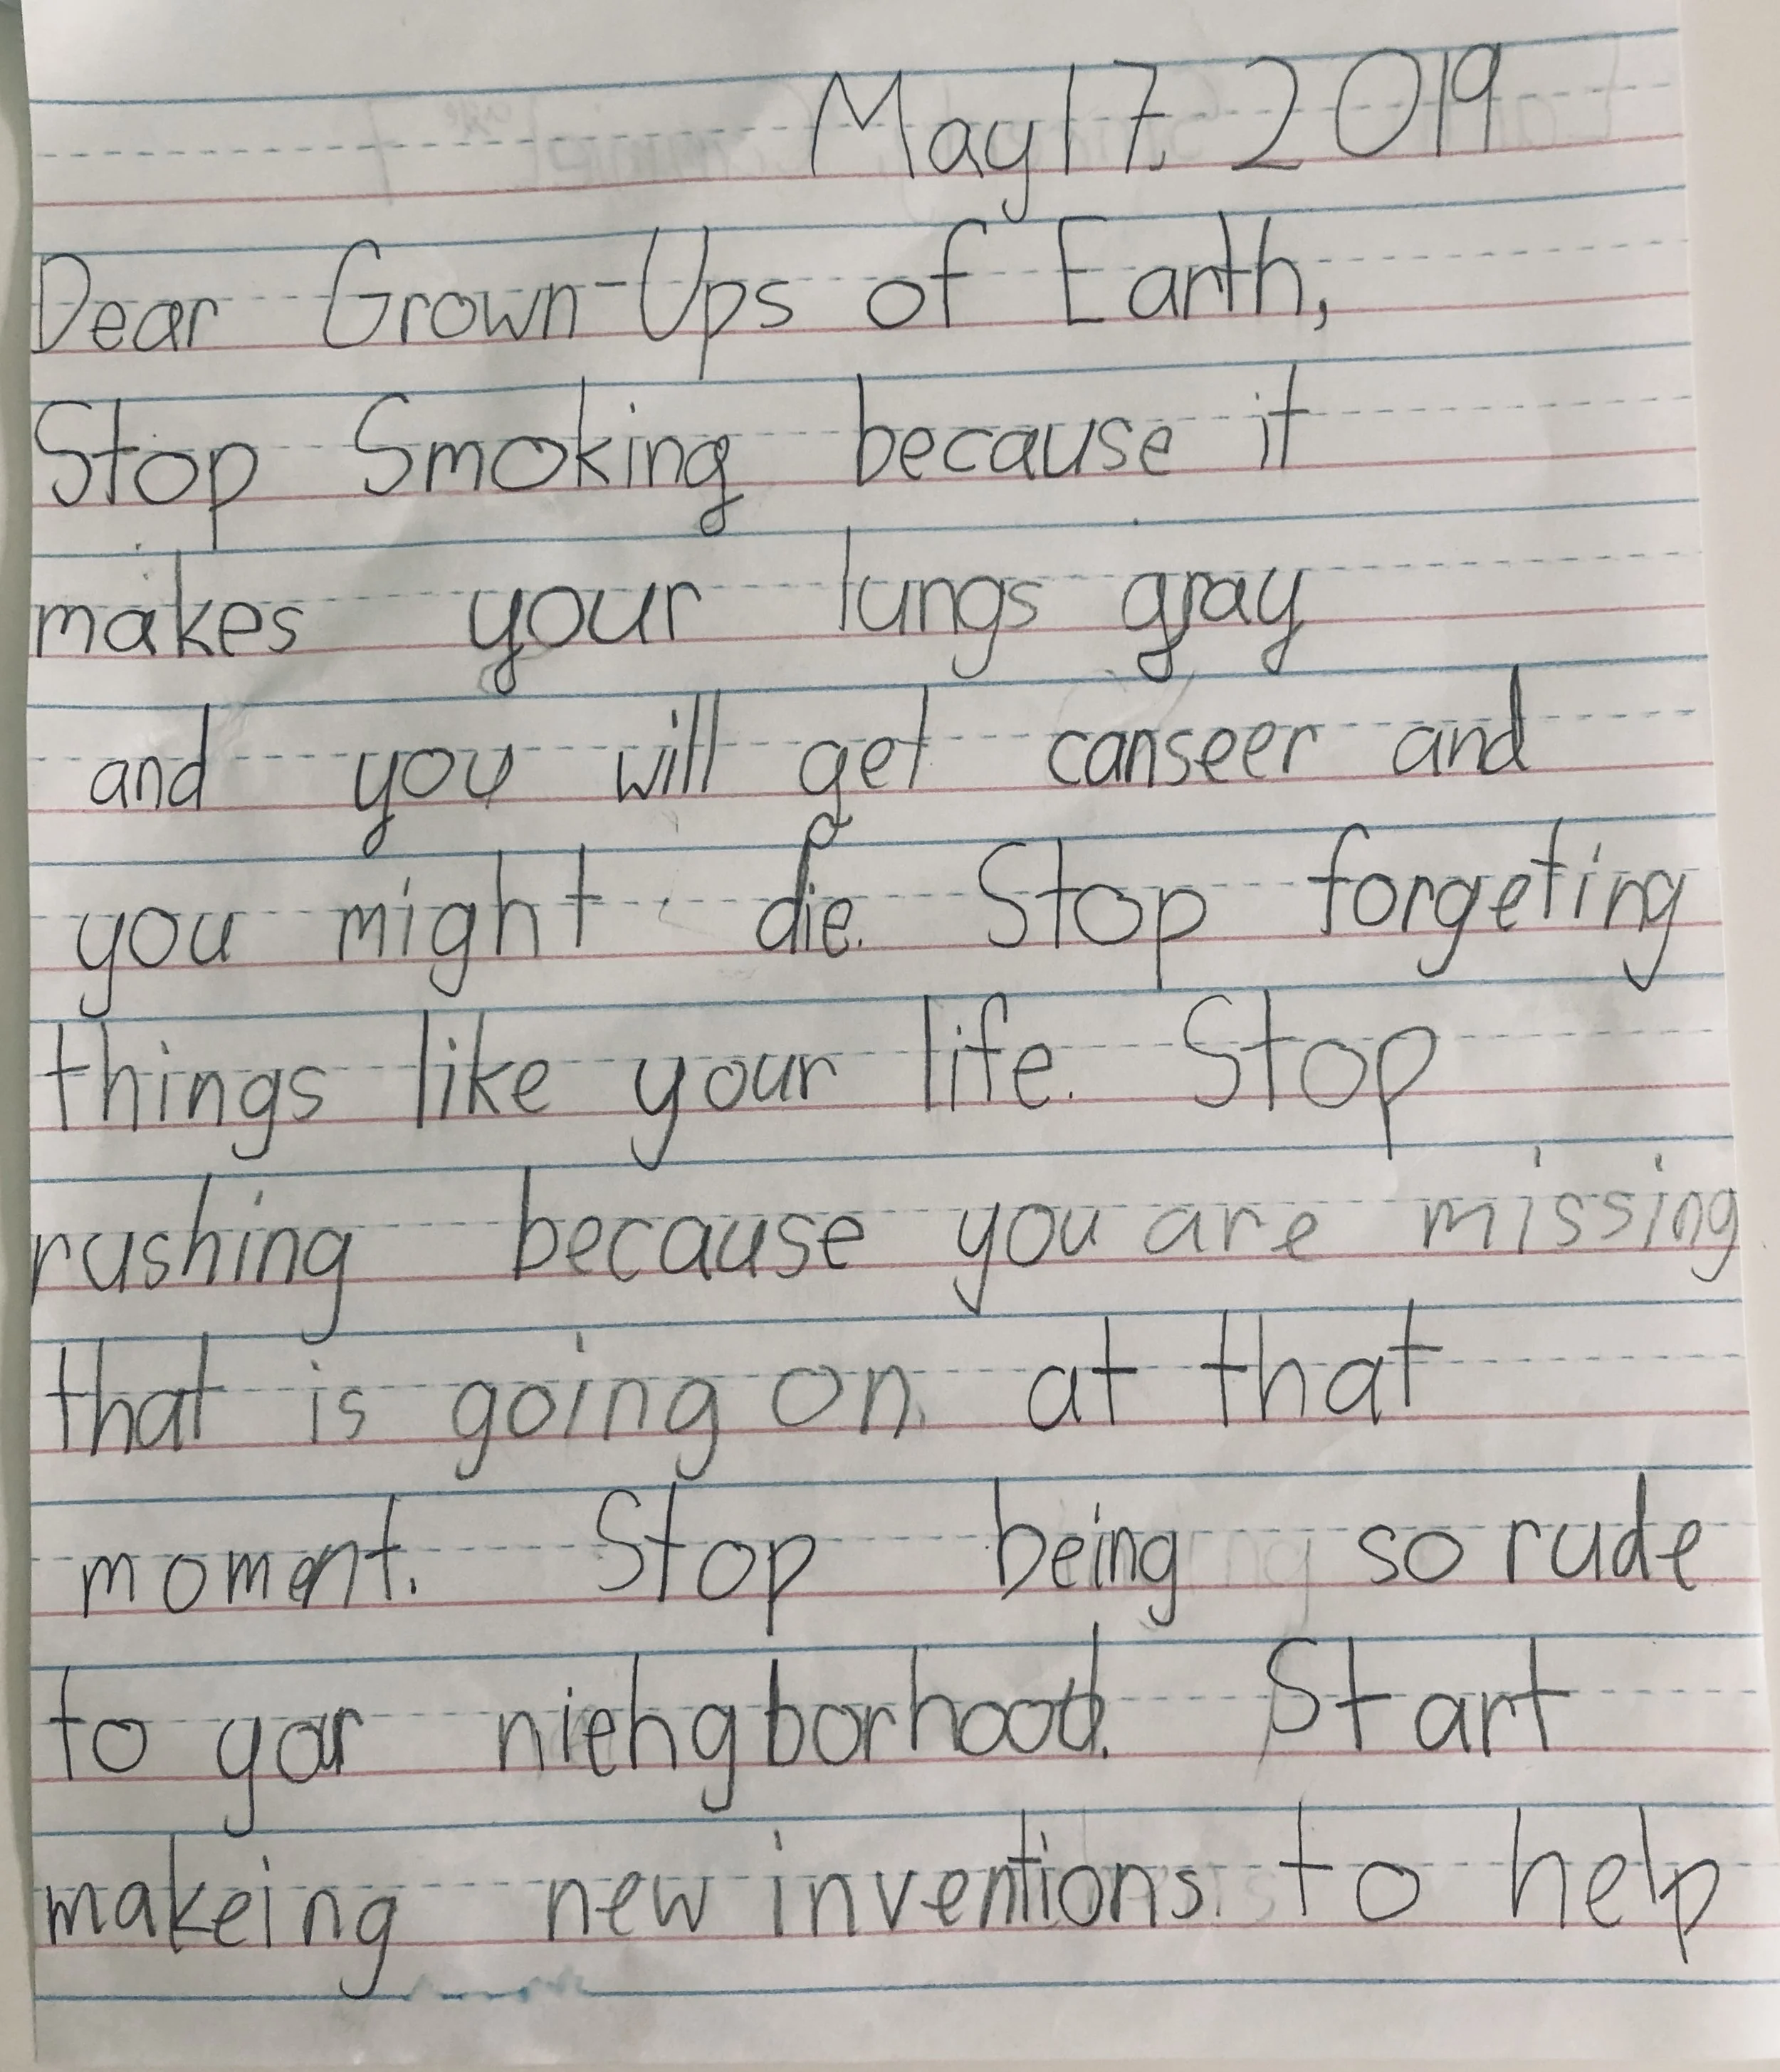 May 17, 2019
Dear Grown-Ups of Earth,
Stop Smoking because it
makes your lungs gray
and you will get canseer and
you might die. Stop forgeting
things like your life. Stop
rushing because you are missing
that is going on. at that
moment. Stop being so rude
to yor niehgborhood. Start
makeing new inventions. to help